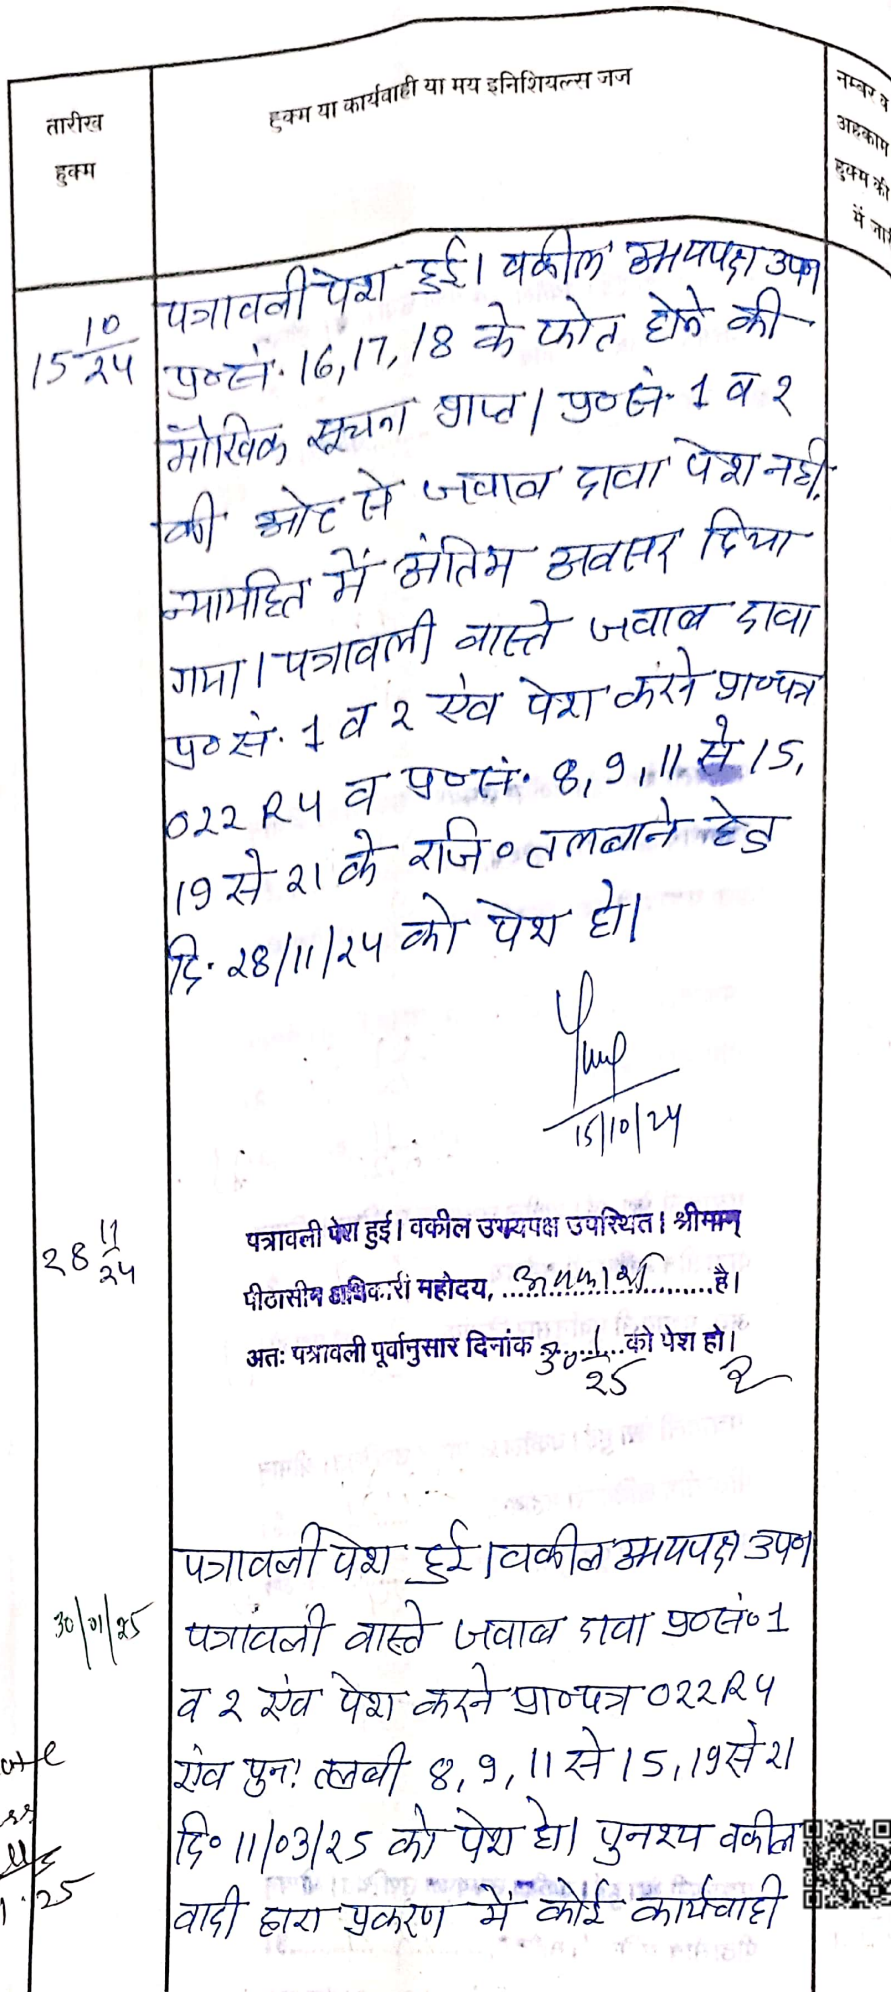 तारीख
हुक्म
हुक्म या कार्यवाही या मय इनिशियल्स जज
नम्बर व
अहकाम
हुक्म की
में जारी
15 10/24
पत्रावली पेश हुई। वकील उभयपक्ष उप०
प्र०सं. 16,17,18 के फोत होने की
मौखिक सूचना प्राप्त। प्र०सं. 1 व 2
की ओर से जवाब दावा पेश नहीं,
न्यायहित में अंतिम अवसर दिया
गया। पत्रावली वास्ते जवाब दावा
प्र०सं. 1 व 2 एंव पेश करने प्रा०पत्र
022 R4 व प्र०सं. 8,9,11 से 15,
19 से 21 के रजि० तलबाने हेतु
दि. 28/11/24 को पेश हो।
15/10/24
28 11/24
पत्रावली पेश हुई। वकील उभयपक्ष उपस्थित। श्रीमान्
पीठासीन अधिकारी महोदय, ...अवकाश...है।
अतः पत्रावली पूर्वानुसार दिनांक 30 1/25 को पेश हो।
30/01/25
पत्रावली पेश हुई। वकील उभयपक्ष उप०
पत्रावली वास्ते जवाब दावा प्र०सं० 1
व 2 एंव पेश करने प्रा०पत्र 022 R4
एंव पुन: तलबी 8,9,11 से 15,19 से 21
दि० 11/03/25 को पेश हो। पुनश्च वकील
वादी द्वारा प्रकरण में कोई कार्यवाही